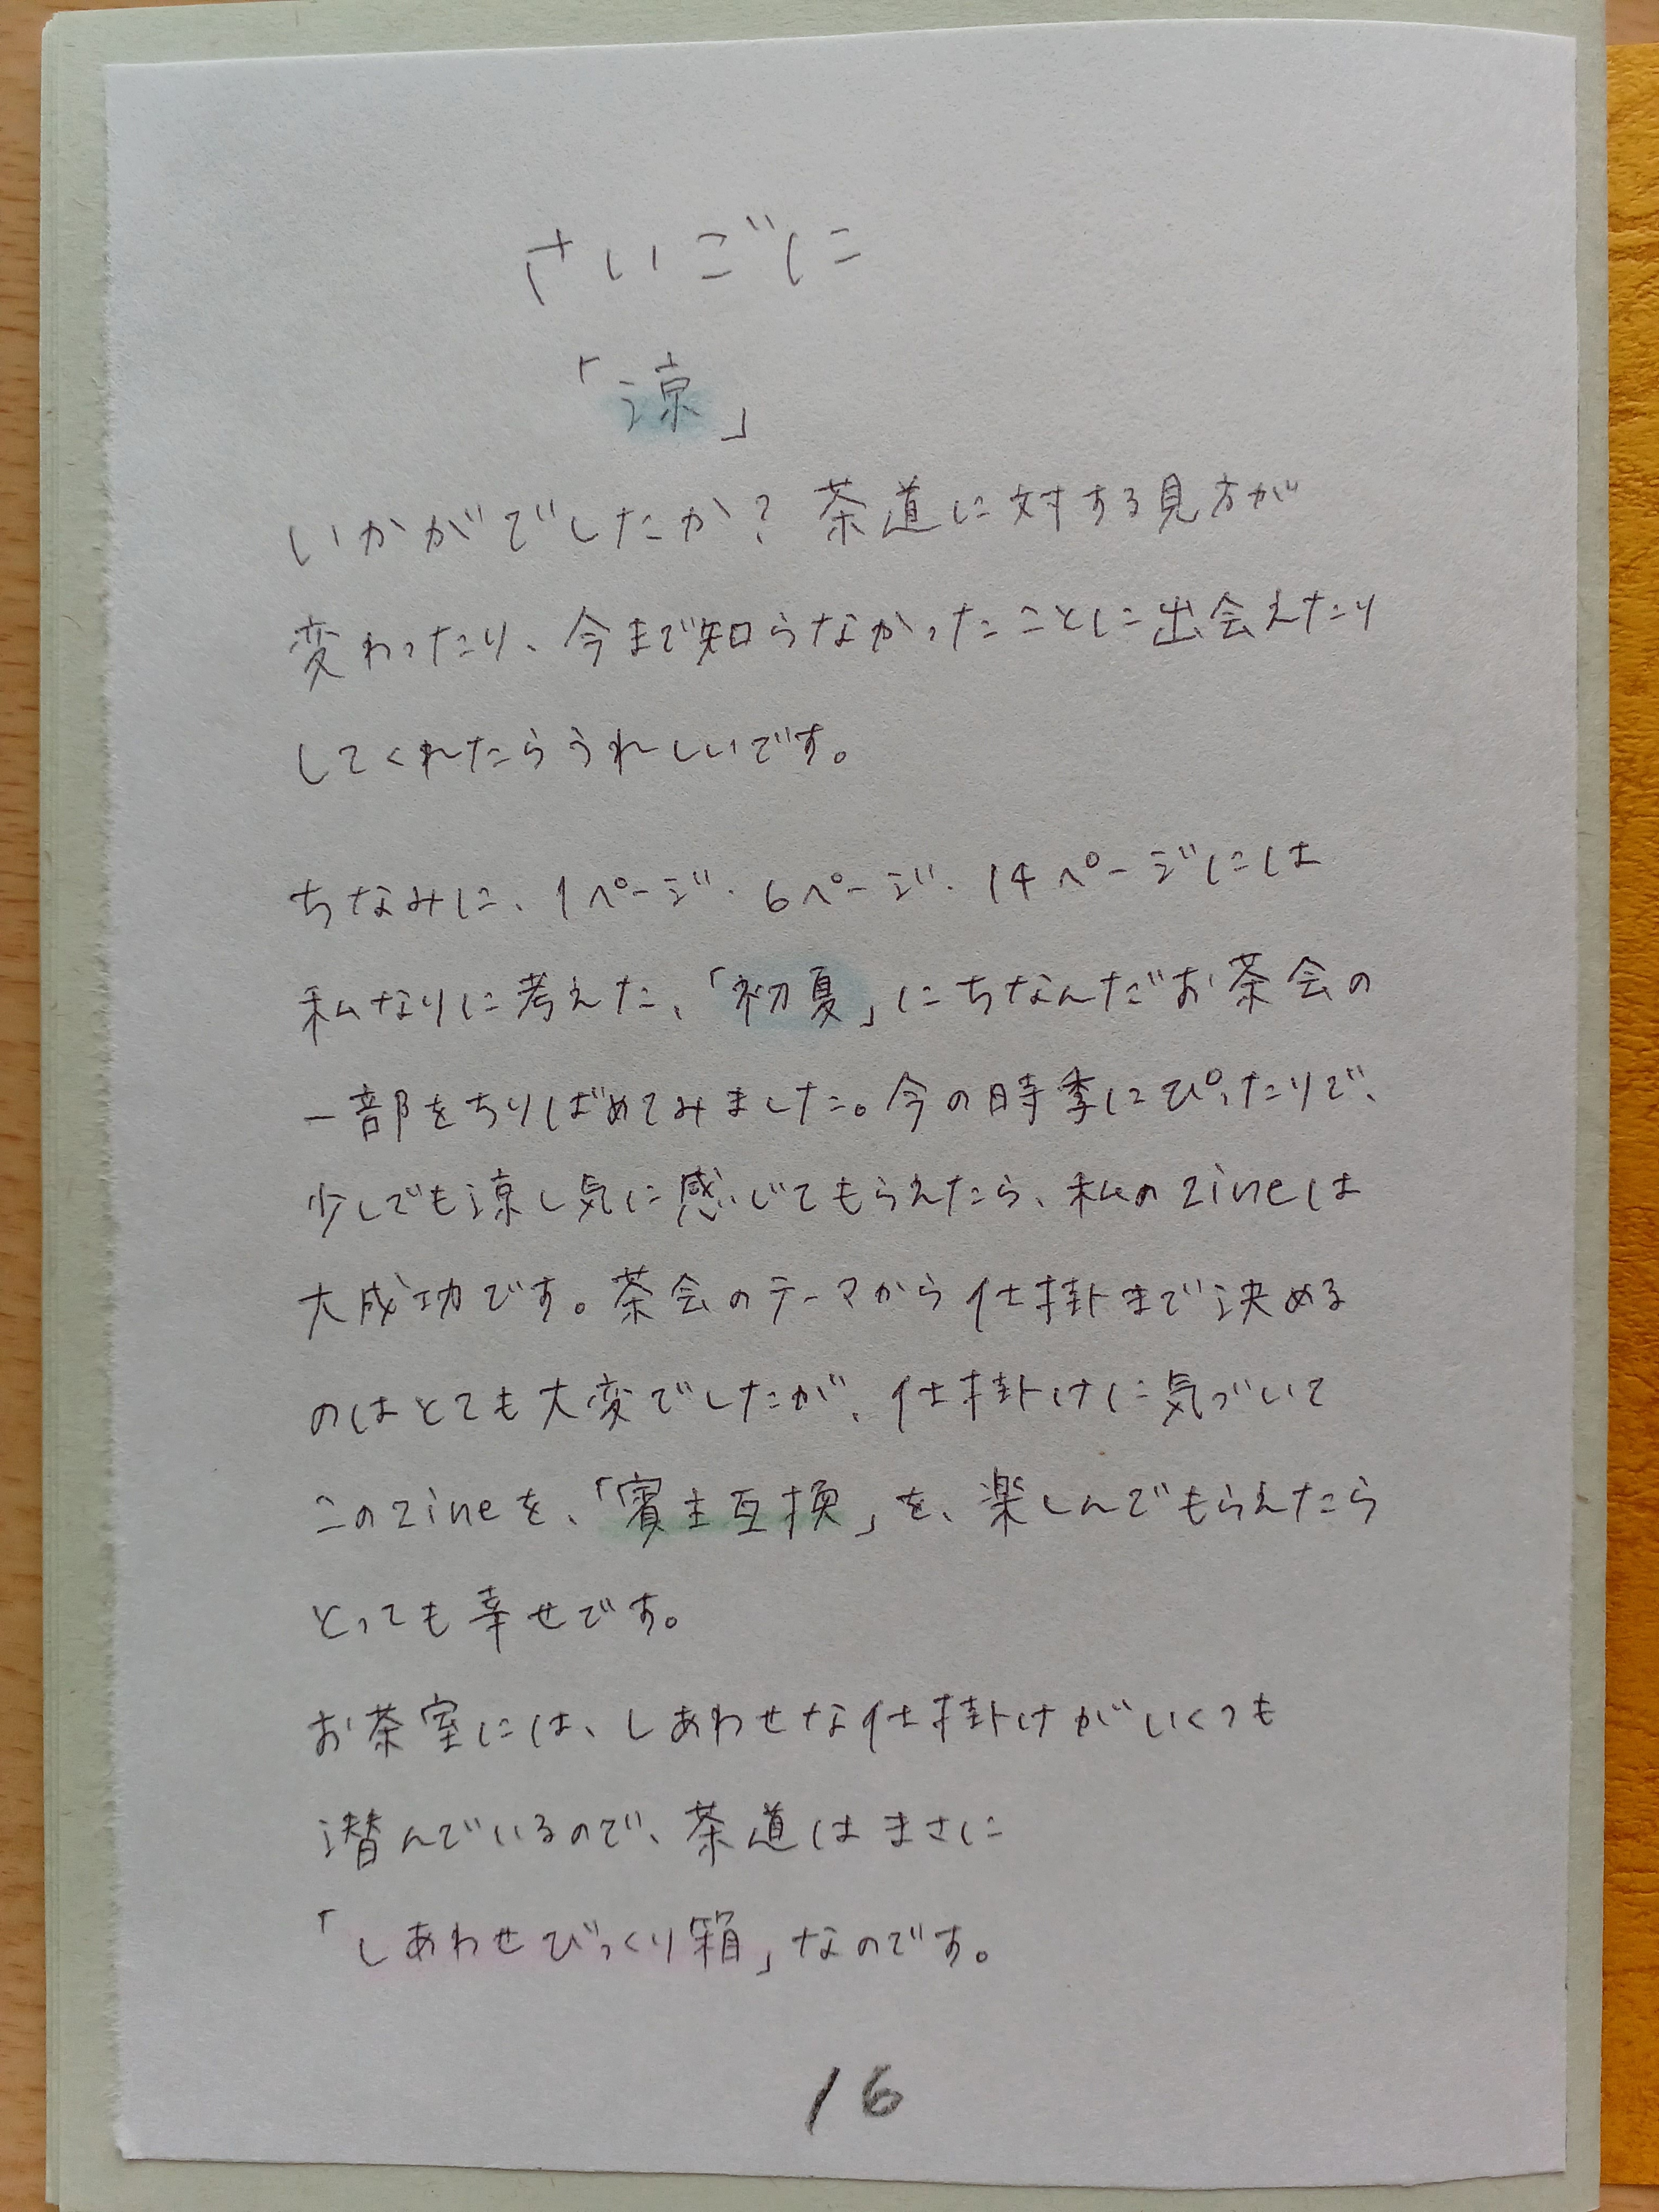 さいごに
「涼」
いかがでしたか？茶道に対する見方が
変わったり、今まで知らなかったことに出会えたり
してくれたらうれしいです。
ちなみに、1ページ・6ページ・14ページには
私なりに考えた、「初夏」にちなんだお茶会の
一部をちりばめてみました。今の時季にぴったりで、
少しでも涼し気に感じてもらえたら、私のzineは
大成功です。茶会のテーマから仕掛まで決める
のはとても大変でしたが、仕掛けに気づいて
このzineを、「賓主互換」を、楽しんでもらえたら
とっても幸せです。
お茶室には、しあわせな仕掛けがいくつも
潜んでいるので、茶道はまさに
「しあわせびっくり箱」なのです。
16